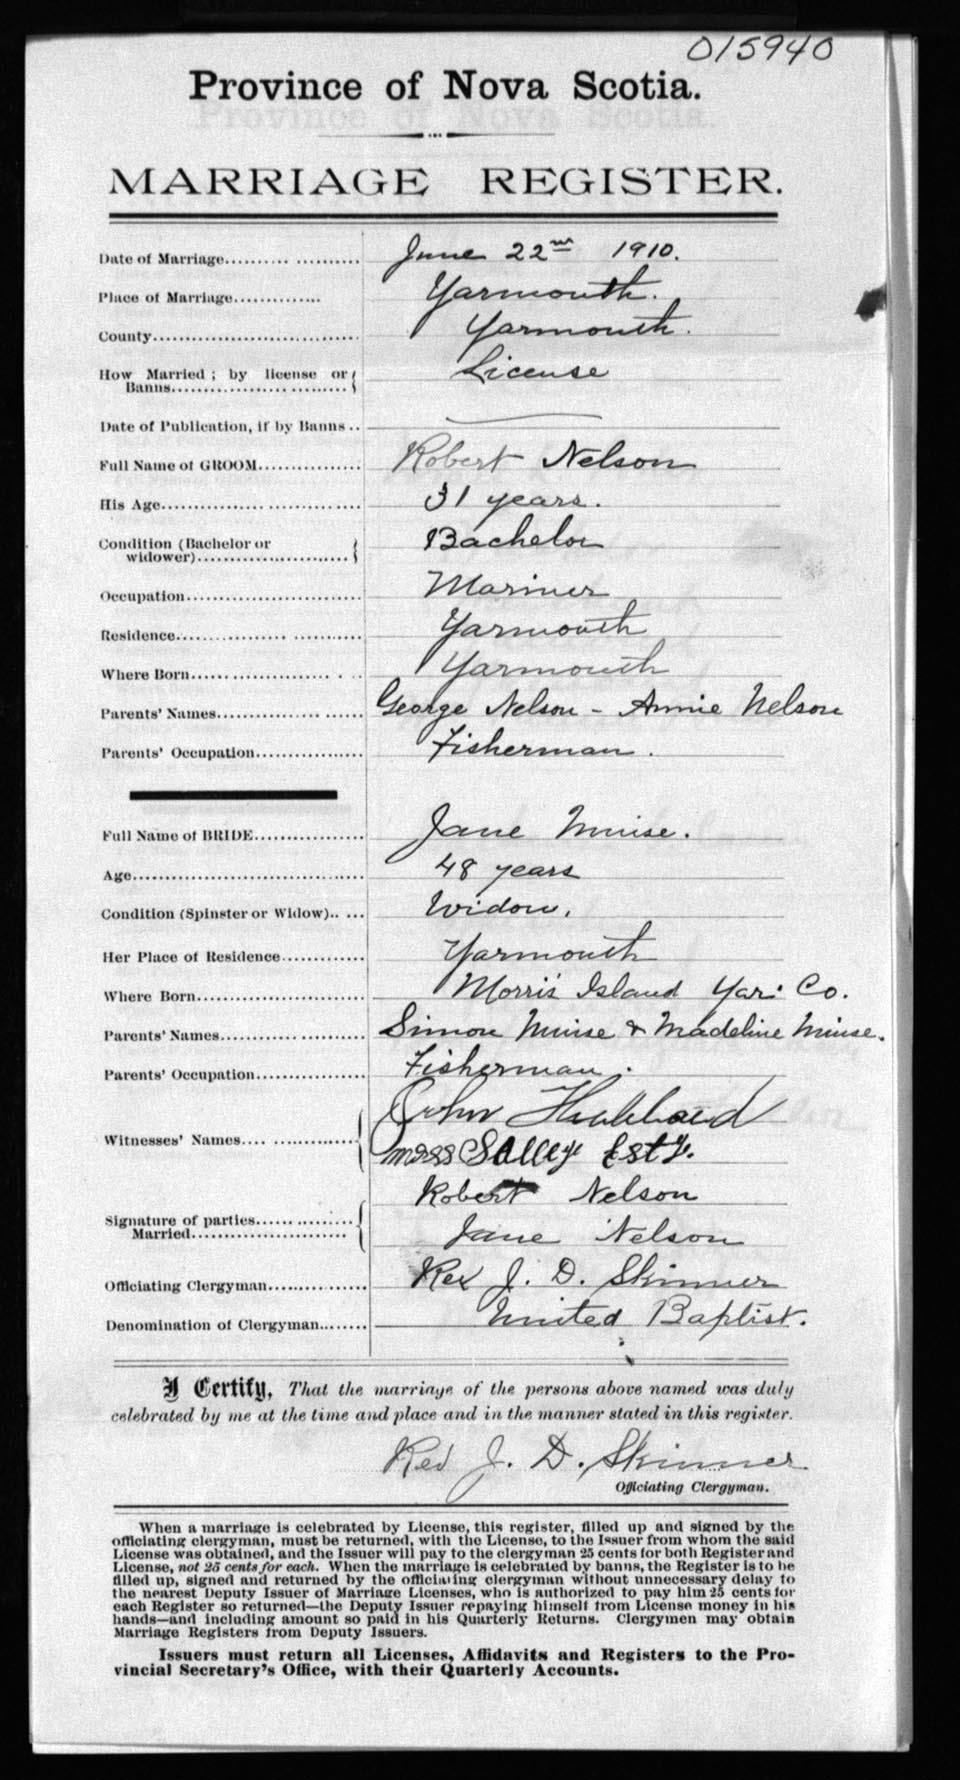 015940
Province of Nova Scotia.
MARRIAGE REGISTER.
Date of Marriage..................... June 22nd 1910.
Place of Marriage.............. Yarmouth.
County................................ Yarmouth.
How Married; by license or License
Banns..........................
Date of Publication, if by Banns ..
Full Name of GROOM................ Robert Nelson
His Age................................ 31 years.
Condition (Bachelor or Bachelor
widower)........................
Occupation........................... Mariner
Residence............................. Yarmouth
Where Born........................... Yarmouth
Parents' Names...................... George Nelson - Annie Nelson
Parents' Occupation................ Fisherman.
Full Name of BRIDE................. Jane Muise.
Age..................................... 48 years
Condition (Spinster or Widow)..... Widow.
Her Place of Residence............. Yarmouth
Where Born........................... Morris Island Yar. Co.
Parents' Names...................... Simon Muise & Madeline Muise.
Parents' Occupation................ Fisherman.
John Hubbard
Witnesses' Names....................
Miss Salley Esty.
Robert Nelson
Signature of parties................
Married........................... Jane Nelson
Officiating Clergyman............... Rev J. D. Skinner
Denomination of Clergyman........ United Baptist.
I Certify, That the marriage of the persons above named was duly
celebrated by me at the time and place and in the manner stated in this register.
Rev J. D. Skinner
Officiating Clergyman.
When a marriage is celebrated by License, this register, filled up and signed by the
officiating clergyman, must be returned, with the License, to the Issuer from whom the said
License was obtained, and the Issuer will pay to the clergyman 25 cents for both Register and
License, not 25 cents for each. When the marriage is celebrated by banns, the Register is to be
filled up, signed and returned by the officiating clergyman without unnecessary delay to
the nearest Deputy Issuer of Marriage Licenses, who is authorized to pay him 25 cents for
each Register so returned—the Deputy Issuer repaying himself from License money in his
hands—and including amount so paid in his Quarterly Returns. Clergymen may obtain
Marriage Registers from Deputy Issuers.
Issuers must return all Licenses, Affidavits and Registers to the Pro-
vincial Secretary's Office, with their Quarterly Accounts.